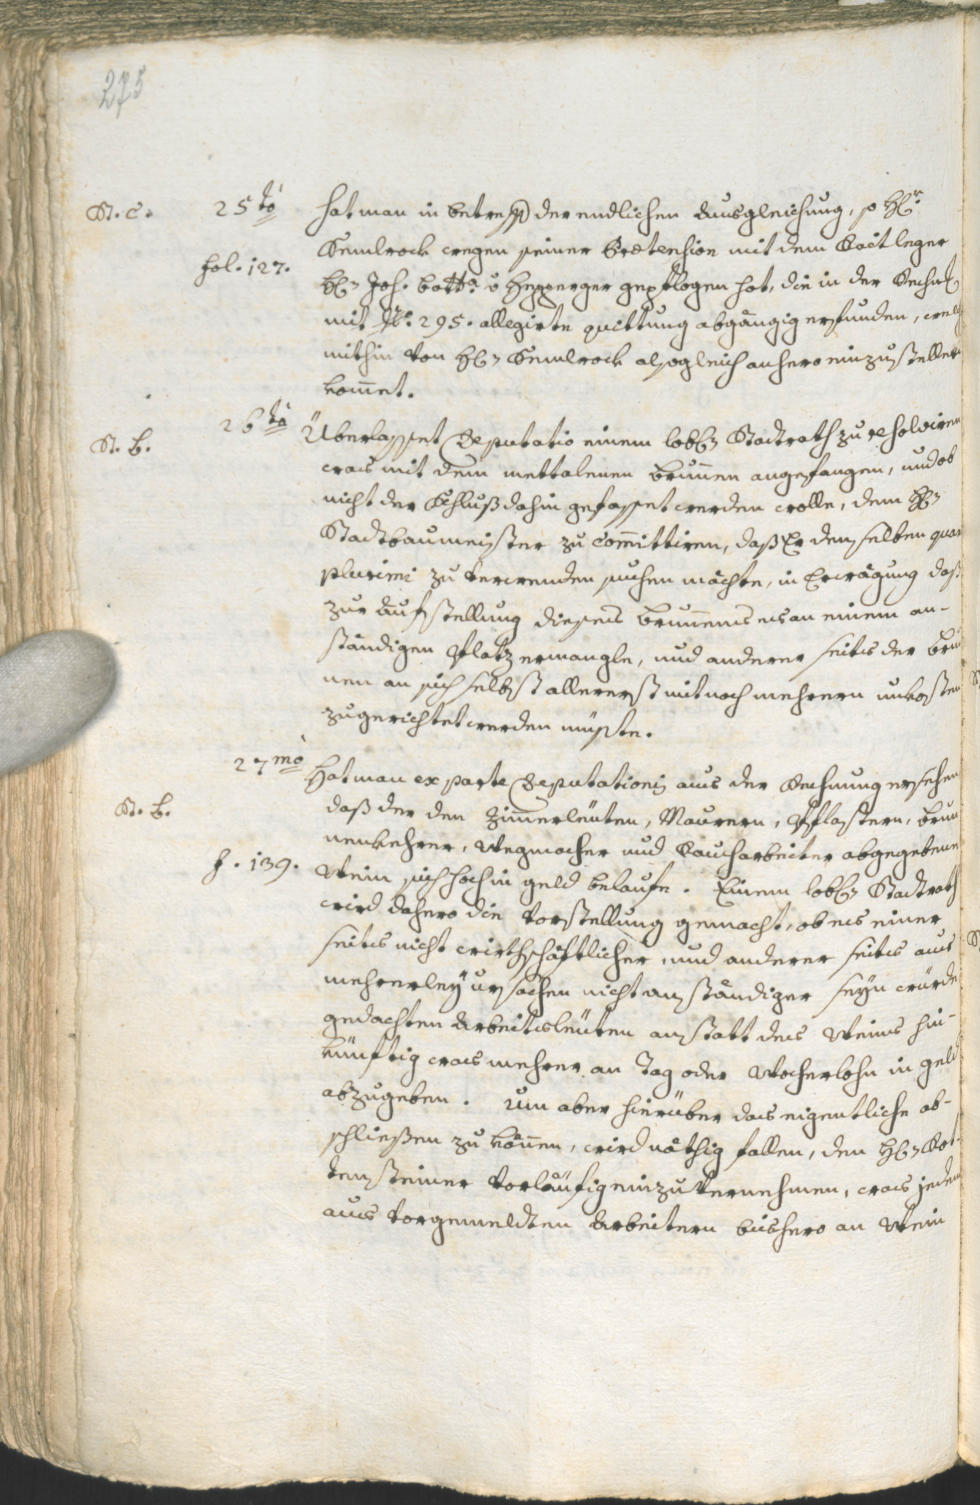 275
St. C. 25to hat man in betreff der endlichen Ausgleichung, so Hr.
Semlrock wegen seiner Praetension mit dem Raitleger
fol. 127. H: Joh. Batta v Hepperger gepflogen hat, die in der Rechn:
mit No. 295. allegirte quittung abgängig erfunden, wel
mithin von H: Semlrock alsogleich anhero einzustellen
kommet.
St. B. 26to Überlasset Deputatio einem lobl: Stadtrath zu resolviren
was mit dem mettalenen Brunnen angefangen, und ob
nicht der Schluß dahin gefasset werden wolle, dem H:
Stadtbaumeister zu committiren, daß Er denselben quam
plurimi zu verwenden suchen möchte, in Erwägung daß
zur Aufstellung dieses Brunnens es an einem an-
ständigen Platz ermangle, und anderer seits der Brun
nen an sich selbst allererst mit noch mehrern unkosten
zugerichtet werden müste.
27mo Hat man ex parte Deputationis aus der Rechnung ersehen
St. B. daß der den Zimerleuten, Maurern, Pflastern, Brun
nenkehrer, Wegmacher und Raucharbeiter abgegebene
f. 139. Wein sich hoch in geld belaufe. Einem lobl: Stadtrath
wird dahero die Vorstellung gemacht, ob es einer
seits nicht wirthschäftlicher, und anderer seits aus
mehrerley ursachen nicht anständiger seyn würde
gedachten Arbeitsleuten anstatt des Weins hin-
künftig was mehrer an Tag oder Wocherlohn in geld
abzugeben. Um aber hierüber das eigentliche ab-
schließen zu können, wird nöthig fallen, den H: Rot-
tensteiner vorläufig einzuvernehmen, was jedem
aus vorgemeldten Arbeitern bishero an Wein